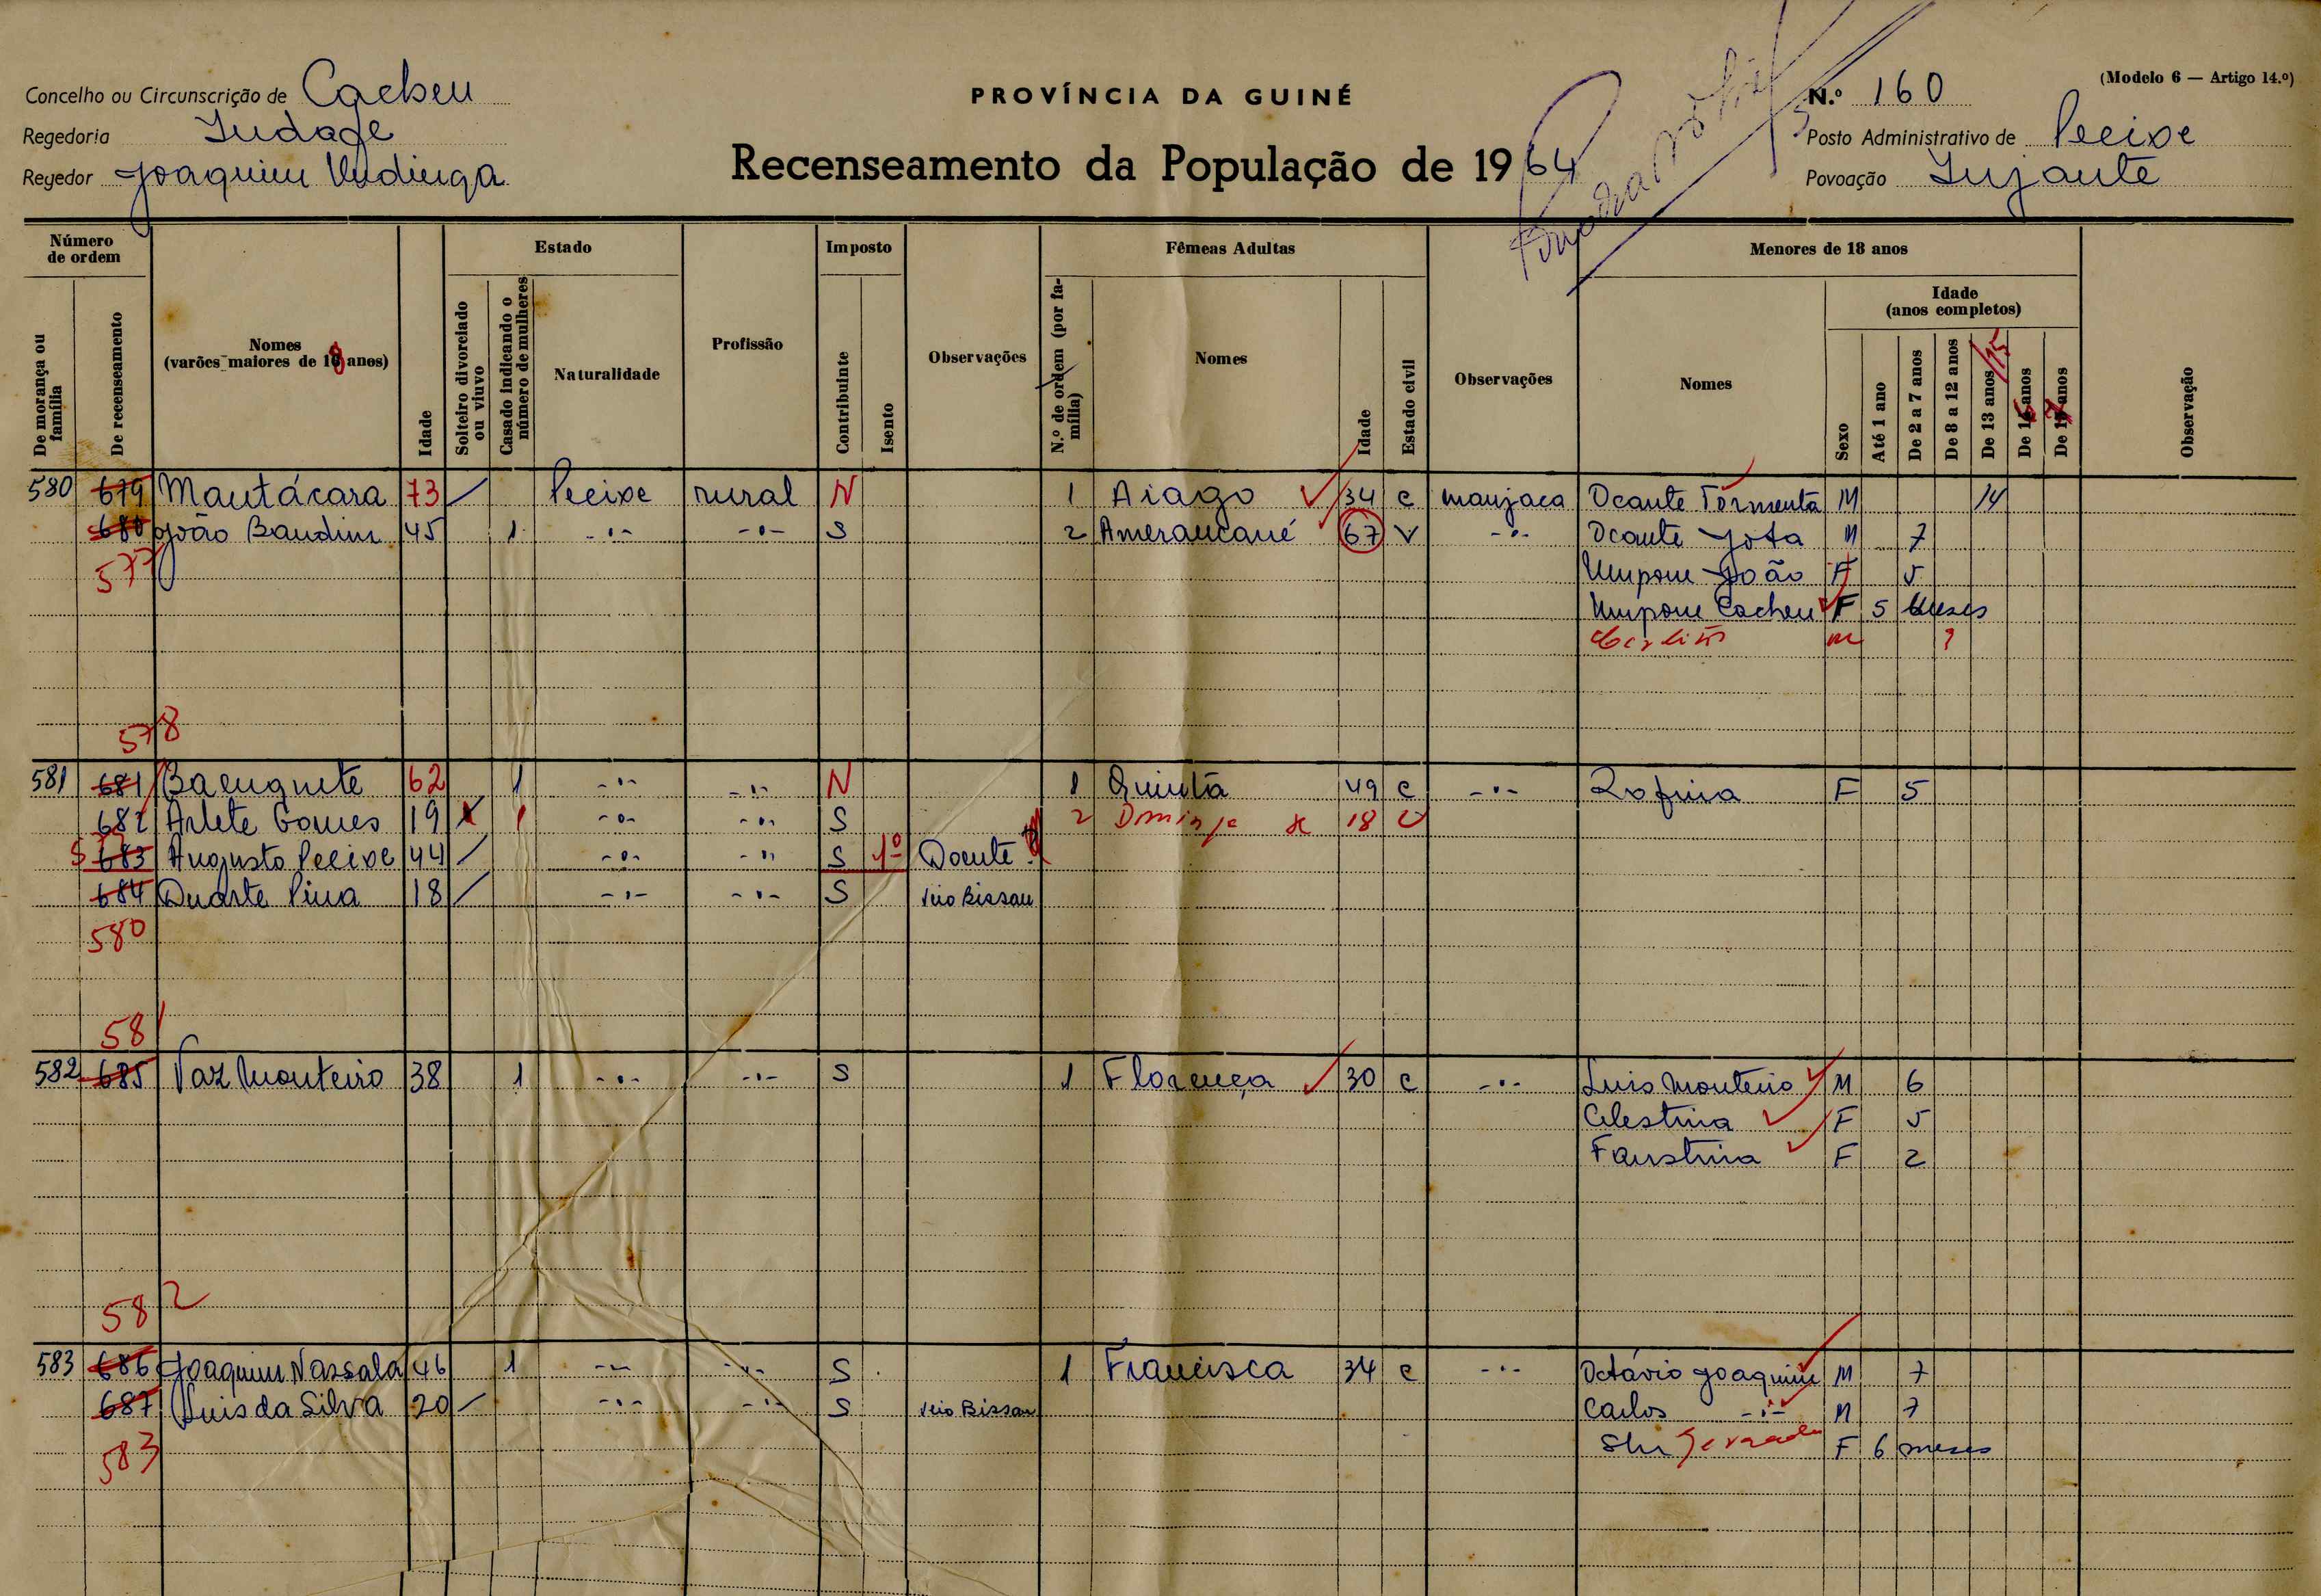 (Modelo 6 — Artigo 14.º)
Concelho ou Circunscrição de Cacheu
PROVÍNCIA DA GUINÉ
N.º 160
Regedoria Indage
Posto Administrativo de Pecixe
Regedor Joaquim
Recenseamento da População de 1964
Povoação Injante
Número de ordem
Estado
Imposto
Fêmeas Adultas
Menores de 18 anos
De morança ou família
De recenseamento
Nomes (varões maiores de 18 anos)
Idade
Solteiro divorciado ou viuvo
Casado indicando o número de mulheres
Naturalidade
Profissão
Contribuinte
Isento
Observações
N.º de ordem (por família)
Nomes
Idade
Estado civil
Observações
Nomes
Sexo
Idade (anos completos)
Até 1 ano
De 2 a 7 anos
De 8 a 12 anos
De 13 anos /15
De anos
De anos
Observação
580 679 Mantácara 73 / Pecixe rural N 1 Aiago 34 c manjaca Ocante Tormenta M 14
680 João Bandim 45 1 -"- -"- S 2 Amerancané 67 V -"- Ocante Jota M 7
577 Umpom João F 5
Umpom Cacheu F 5 meses
M
578
581 681 Baenguete 62 1 -"- -"- N 1 Quinta 49 c -"- Rofina F 5
682 Arlete Gomes 19 1 -"- -"- S 2 Dominga 18 c
683 Augusto Pecixe 44 / -"- -"- S 1º Doente
684 Duarte Pina 18 / -"- -"- S Veio Bissau
580
581
582 685 Vaz Monteiro 38 1 -"- -"- S 1 Florença 30 c -"- Luis Monteiro M 6
Celestina F 5
Faustina F 2
582
583 686 Joaquim Nassala 46 1 -"- -"- S 1 Francisca 34 c -"- Octávio Joaquim M 7
687 Luis da Silva 20 / -"- -"- S Veio Bissau Carlos -"- M 7
583 F 6 meses